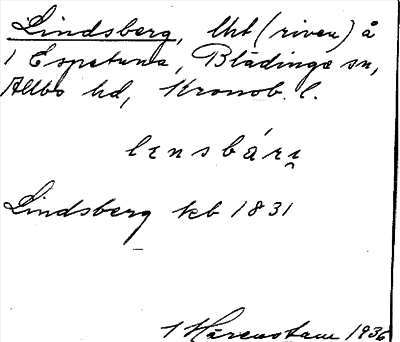 Lindsberg, lht (riven) å
1 Espetuna, Blädinge sn,
Allbo hd, Kronob. l.
lensbárı̯
Lindsberg kb 1831
1 Härenstam 1936